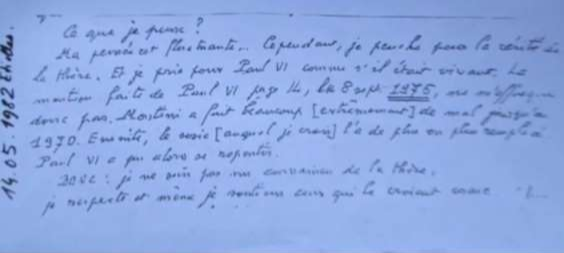 Ce que je pense ?
Ma pensée est fluctuante... Cependant, je penche pour la vérité de
la thèse. Et je prie pour Paul VI comme s'il était vivant. La
mention faite de Paul VI page 14, le 8 sept 1975, ne m'offusque
donc pas. Montini a fait beaucoup [extrêmement] de mal jusqu'à
1970. Ensuite, le sosie [auquel je crois] l'a de plus en plus remplacé
Paul VI a pu alors se repentir.
Bref : je ne suis pas un convaincu de la thèse,
je respecte et même je soutiens ceux qui la croient vraie.
14.05.1982